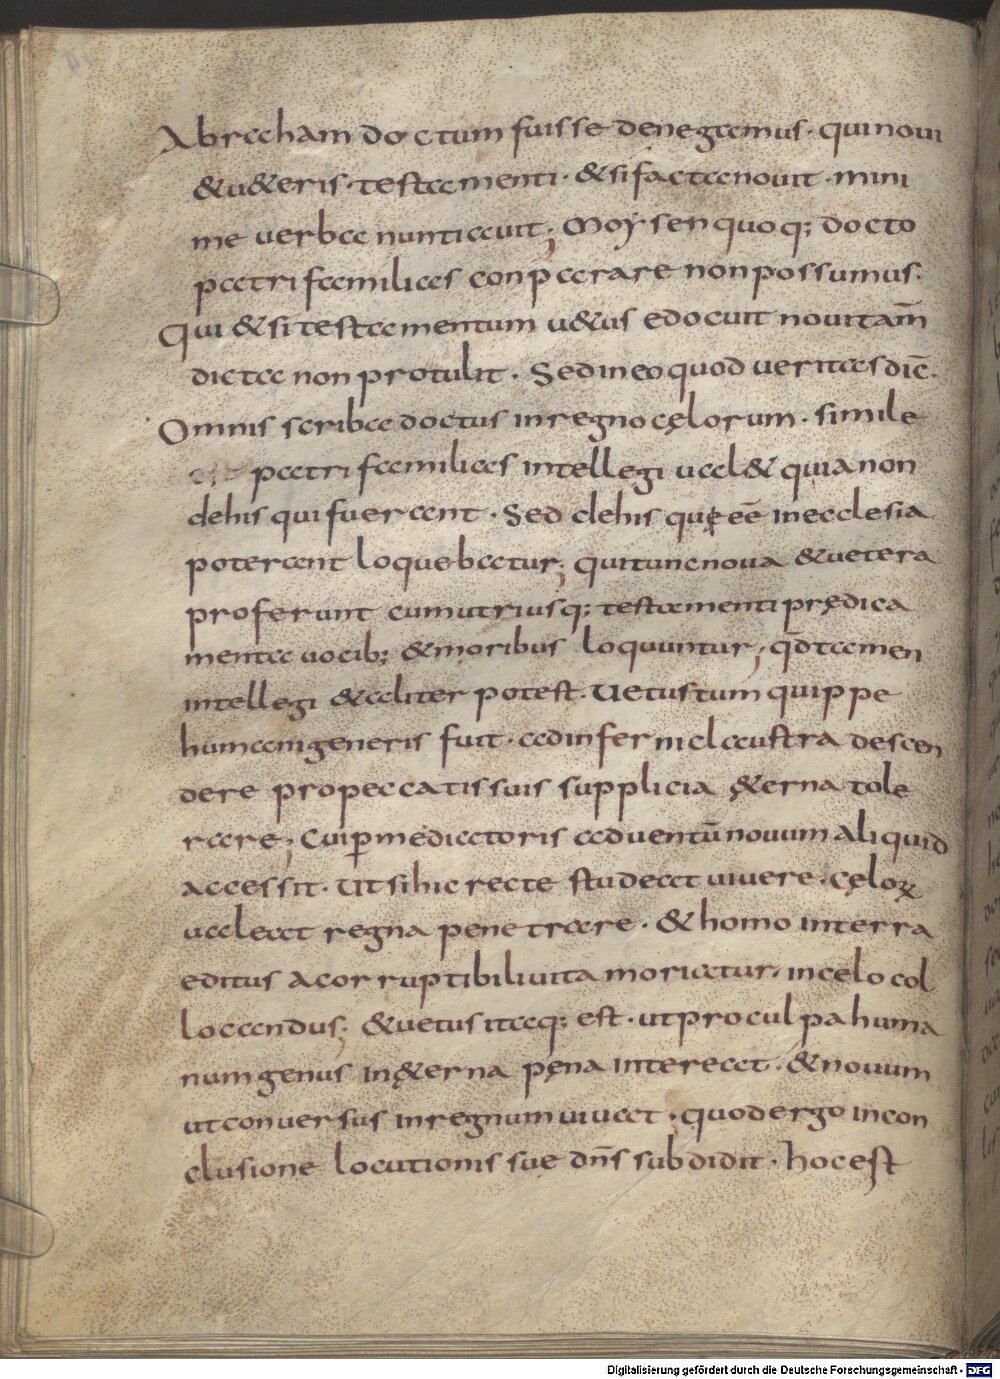 Abraham doctum fuisse denegamus· qui novi
& v&eris· testamenti· & si facta novit· mini
me verba nuntiavit; Moysen quoq; docto
patri familias conparare non possumus·
Qui & si testamentum v&us edocuit novi tam̄
dicta non protulit· Sed in eo quod veritas dic̄·
Omnis scriba doctus in regno cęlorum· simile
est patri familias intellegi val& quia non
de his qui fuerant· Sed de his quę eē in ecclesia
poterant loquebatur; qui tunc nova & vetera
proferunt cum utriusq; testamenti prędica
menta vocib; & moribus loquuntur; qđ tamen
intellegi & aliter potest· Vetustum quippe
humani generis fuit· ad inferni claustra descen
dere pro peccatis suis supplicia ę&erna tole
rare; Cui ꝑ mediatoris adventū novum aliquid
accessit· Ut si hic recte studeat vivere· cęloꝝ
valeat regna penetrare· & homo in terra
editus a corruptibili vita moriatur· in celo col
locandus; & vetus itaq; est· ut pro culpa huma
num genus in ę&erna pęna intereat· & novum
ut conversus in regnum vivat· quod ergo in con
clusione locutionis sue dn̄s subdidit· hoc est
Digitalisierung gefördert durch die Deutsche Forschungsgemeinschaft - DFG